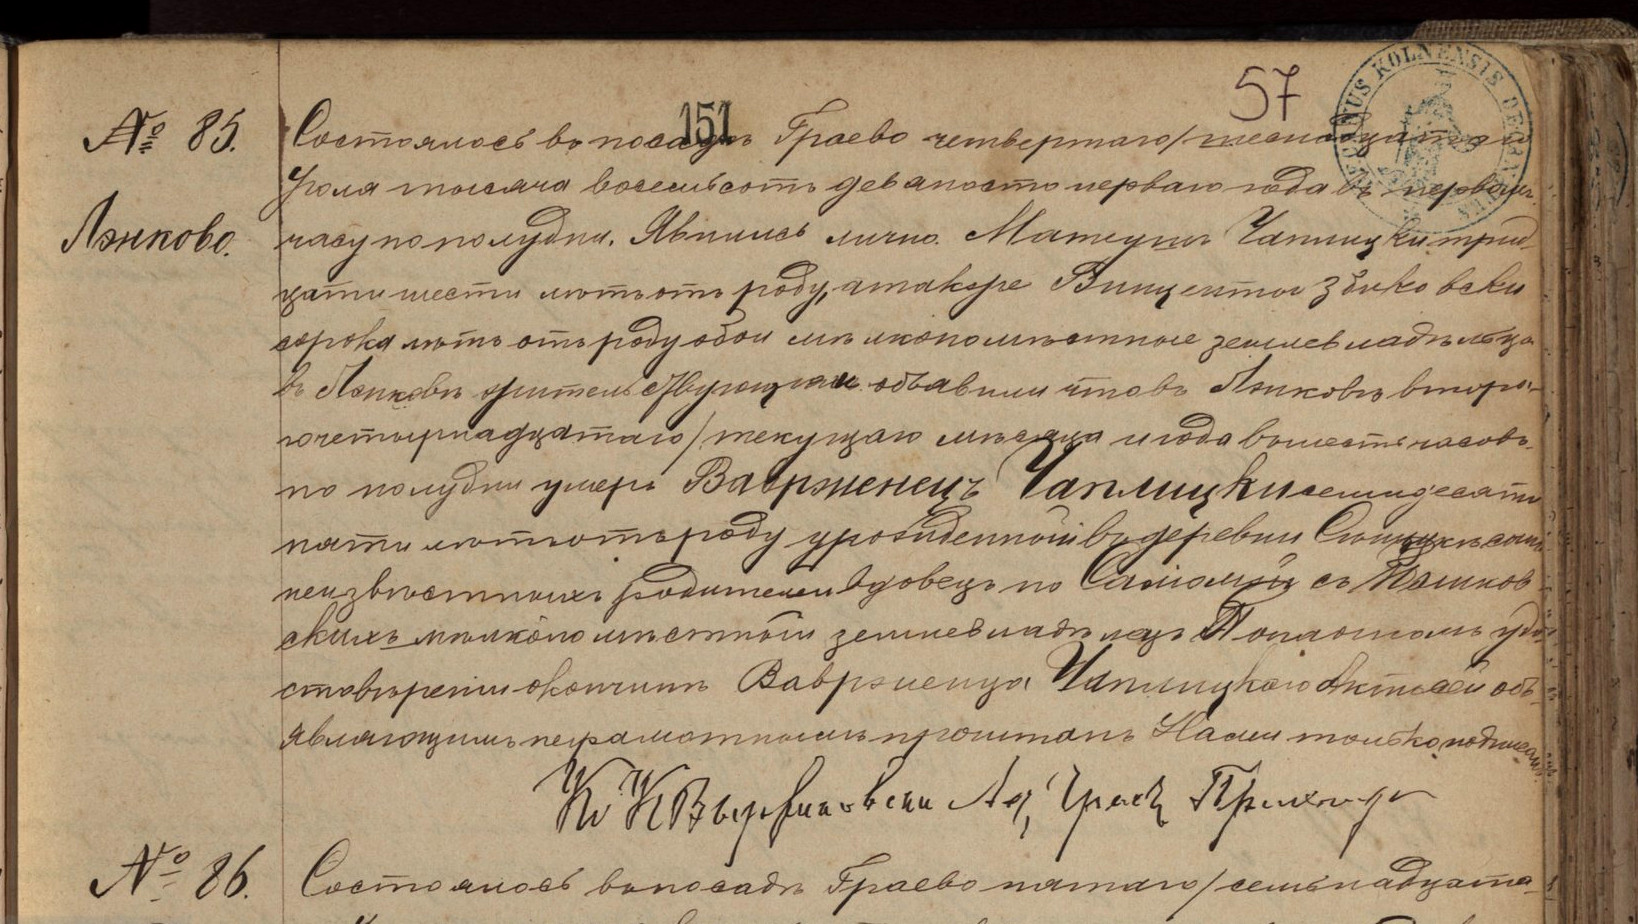 57
151
№ 85.
Лэнково.
Состоялось въ посадѣ Граево четвертаго/шестнадцатаго
Іюля тысяча восемьсотъ девяносто перваго года въ первомъ
часу по полудни. Явились лично Матеушъ Чаплицки трид-
цати шести лѣтъ отъ роду, а также Винцентъ
сорока лѣтъ отъ роду обои мѣлкопомѣстные землевладѣльцы
въ Лэнковѣ жительствующіе и объявили что въ Лэнковѣ второ-
го четырнадцатаго/текущаго мѣсяца и года въ шесть часовъ
по полудни умеръ Вавржинецъ Чаплицки семидесяти
пяти лѣтъ отъ роду урожденной въ деревни сынъ
неизвѣстныхъ родителей вдовецъ по Саломеи съ
скихъ мѣлкопомѣстный землевладѣлецъ По настоящемъ удо-
ствѣреніи о кончинѣ Вавржинца Чаплицкаго Актъ сей объ-
являющимъ неграмотнымъ прочитанъ Нами только подписанъ.
№ 86.
Состоялось въ посадѣ Граево пятаго/семьнадцата-